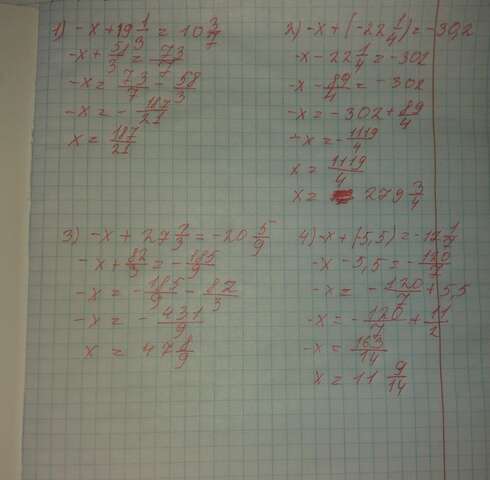 1) -x + 19 1/3 = 10 3/7
-x + 58/3 = 73/7
-x = 73/7 - 58/3
-x = - 187/21
x = 187/21
2) -x + (-22 1/4) = -30,2
-x - 22 1/4 = -302
-x - 89/4 = -302
-x = -302 + 89/4
-x = - 1119/4
x = 1119/4
x = 279 3/4
3) -x + 27 7/3 = -20 5/9
-x + 82/3 = - 185/9
-x = - 185/9 - 82/3
-x = - 431/9
x = 47 8/9
4) -x + (-5,5) = -17 1/7
-x - 5,5 = - 120/7
-x = - 120/7 + 5,5
-x = - 120/7 + 11/2
-x = 163/14
x = 11 9/14